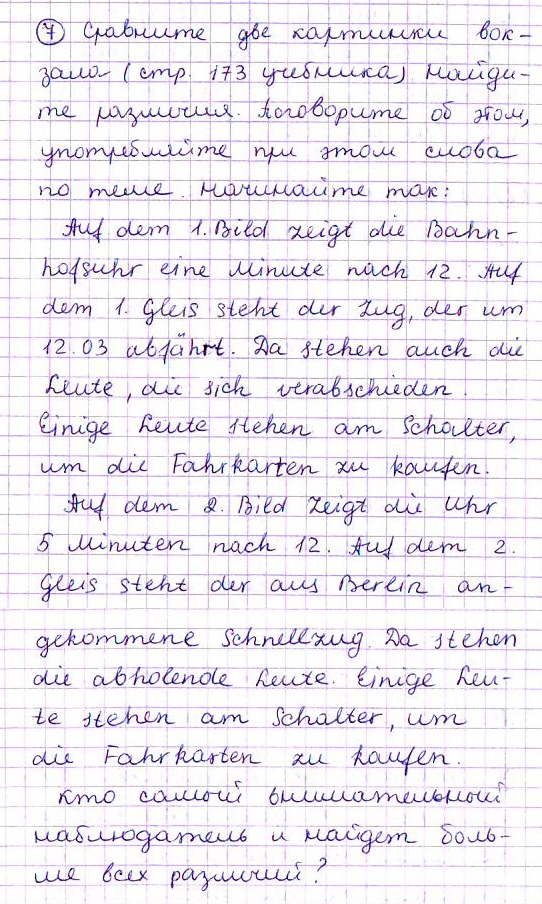 7 Сравните две картинки вок-
зала (стр. 173 учебника) Найди-
те различия. Поговорите об этом,
употребляйте при этом слова
по теме. Начинайте так:
Auf dem 1. Bild zeigt die Bahn-
hofsuhr eine Minute nach 12. Auf
dem 1. Gleis steht der Zug, der um
12.03 abfährt. Da stehen auch die
Leute, die sich verabschieden.
Einige Leute stehen am Schalter,
um die Fahrkarten zu kaufen.
Auf dem 2. Bild zeigt die Uhr
5 Minuten nach 12. Auf dem 2.
Gleis steht der aus Berlin an-
gekommene Schnellzug. Da stehen
die abholende Leute. Einige Leu-
te stehen am Schalter, um
die Fahrkarten zu kaufen.
Кто самый внимательный
наблюдатель и найдет боль-
ше всех различий?